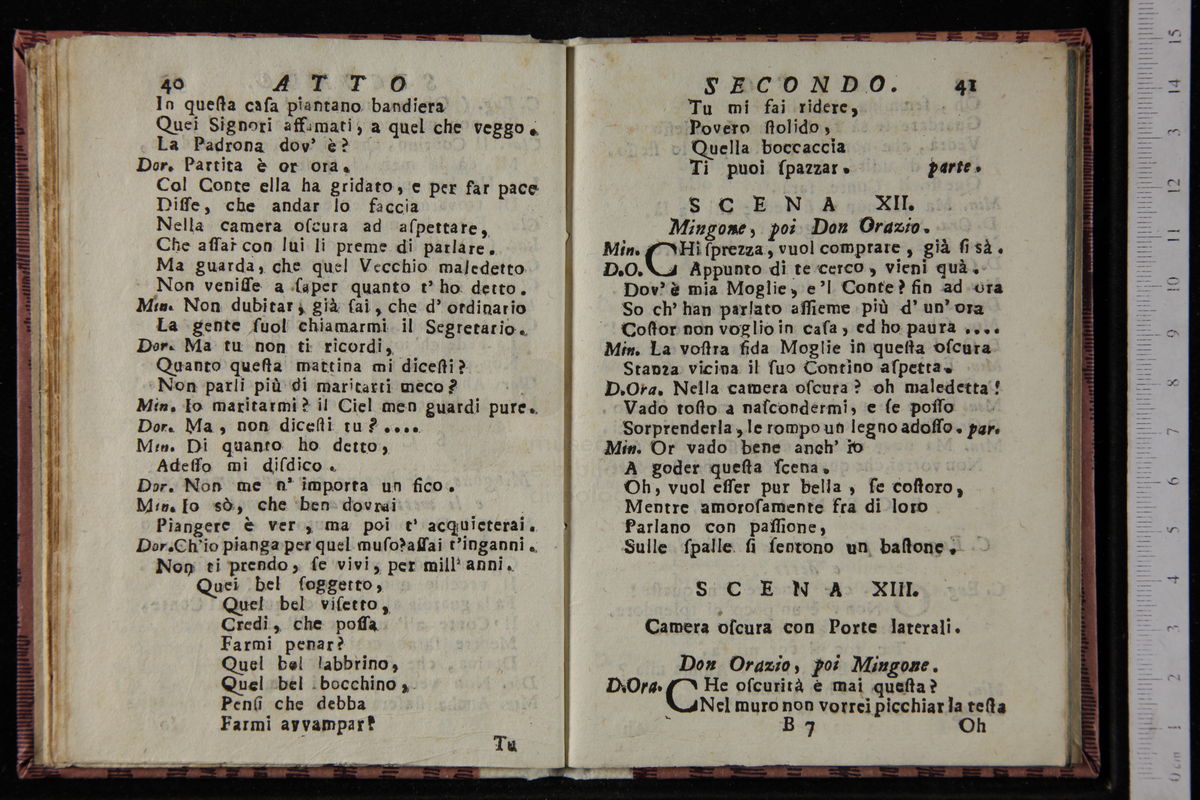 40 ATTO
In queſta caſa piantano bandiera
Quei Signori affamati, a quel che veggo.
La Padrona dov' è?
Dor. Partita è or ora.
Col Conte ella ha gridato, e per far pace
Diſſe, che andar lo faccia
Nella camera oſcura ad aſpettare,
Che aſſai con lui li preme di parlare.
Ma guarda, che quel Vecchio maledetto
Non veniſſe a ſaper quanto t' ho detto.
Min. Non dubitar, già ſai, che d' ordinario
La gente ſuol chiamarmi il Segretario.
Dor. Ma tu non ti ricordi,
Quanto queſta mattina mi diceſti?
Non parli più di maritarti meco?
Min. Io maritarmi? il Ciel men guardi pure.
Dor. Ma, non diceſti tu?....
Min. Di quanto ho detto,
Adeſſo mi diſdico.
Dor. Non me n' importa un fico.
Min. Io sò, che ben dovrai
Piangere è ver, ma poi t' acquieterai.
Dor. Ch'io pianga per quel muſo? aſſai t'inganni.
Non ti prendo, ſe vivi, per mill' anni.
Quei bel ſoggetto,
Quel bel viſetto,
Credi, che poſſa
Farmi penar?
Quel bel labbrino,
Quel bel bocchino,
Penſi che debba
Farmi avvampar?
Tu
SECONDO. 41
Tu mi fai ridere,
Povero ſtolido,
Quella boccaccia
Ti puoi ſpazzar. parte.
SCENA XII.
Mingone, poi Don Orazio.
Min. CHi ſprezza, vuol comprare, già ſi sà.
D.O. Appunto di te cerco, vieni quà.
Dov' è mia Moglie, e 'l Conte? fin ad ora
So ch' han parlato aſſieme più d' un' ora
Coſtor non voglio in caſa, ed ho paura ....
Min. La voſtra fida Moglie in queſta oſcura
Stanza vicina il ſuo Contino aſpetta.
D.Ora. Nella camera oſcura? oh maledetta!
Vado toſto a naſcondermi, e ſe poſſo
Sorprenderla, le rompo un legno adoſſo. par.
Min. Or vado bene anch' io
A goder queſta ſcena.
Oh, vuol eſſer pur bella, ſe coſtoro,
Mentre amoroſamente fra di loro
Parlano con paſſione,
Sulle ſpalle ſi ſentono un baſtone.
SCENA XIII.
Camera oſcura con Porte laterali.
Don Orazio, poi Mingone.
D.Ora. CHe oſcurità è mai queſta?
Nel muro non vorrei picchiar la teſta
B 7 Oh